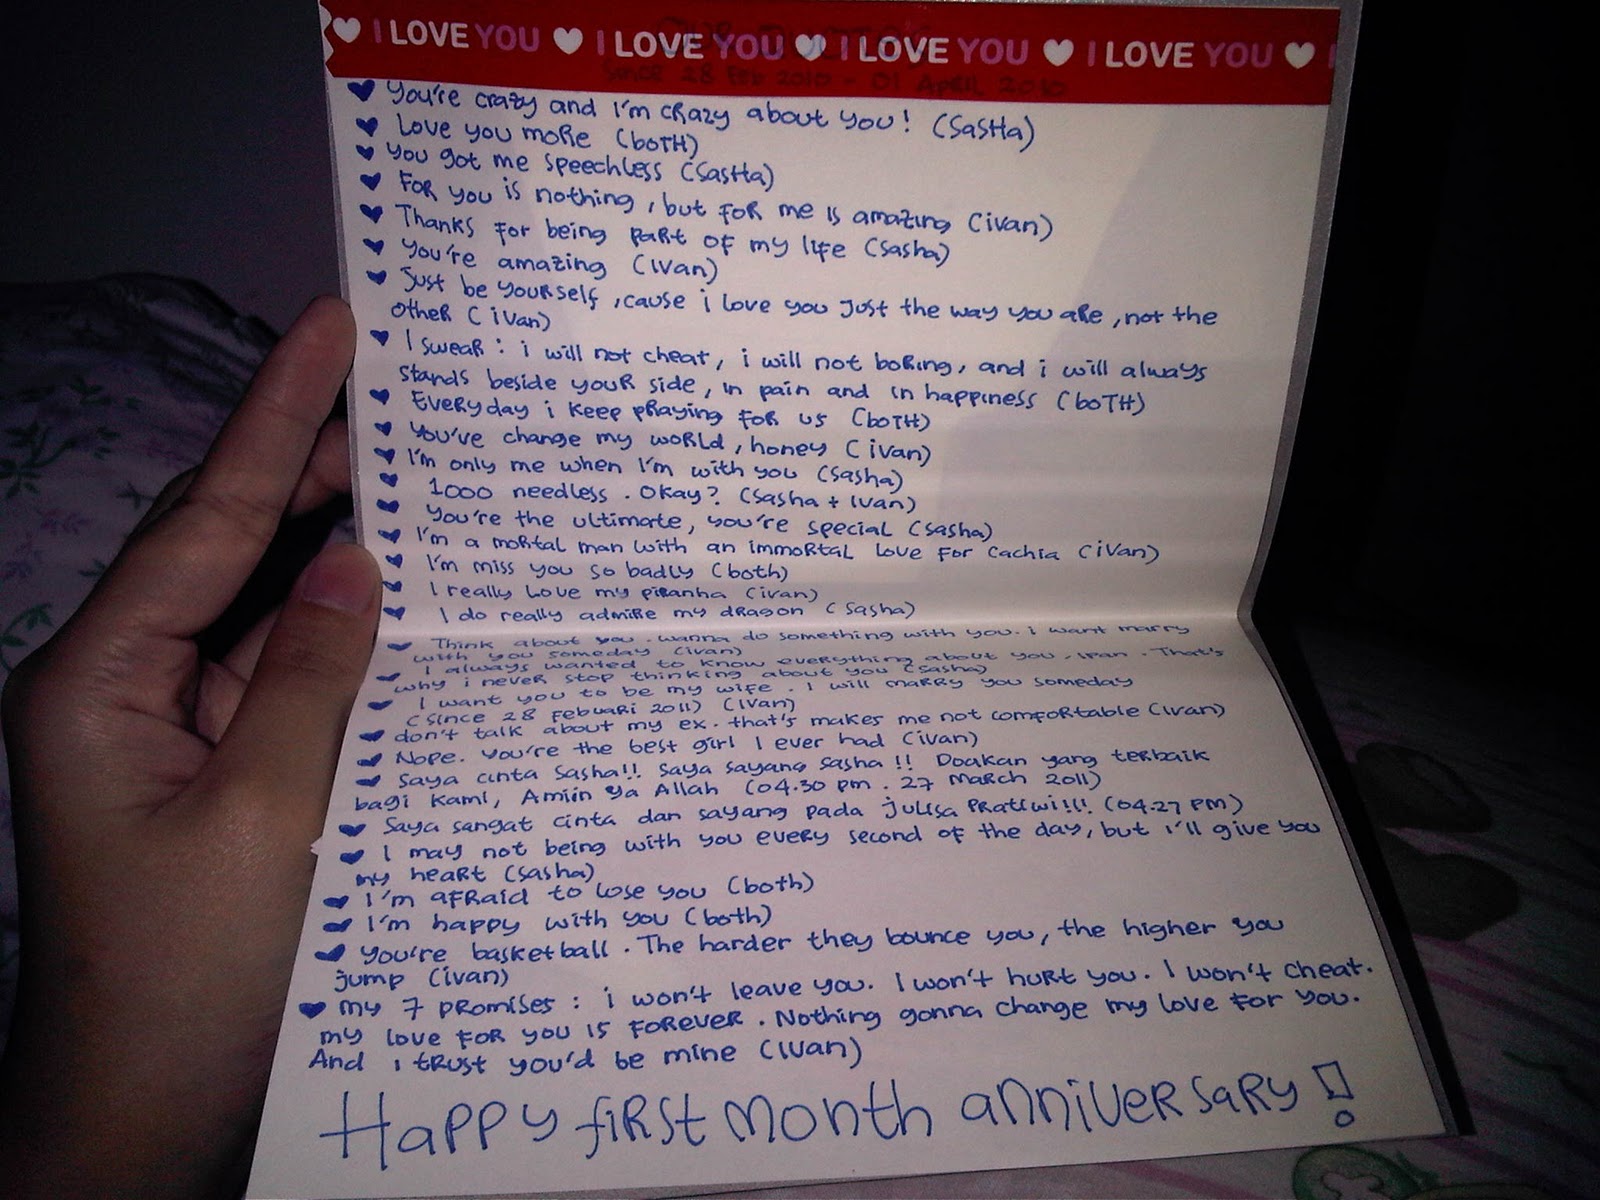 I LOVE YOU I LOVE YOU I LOVE YOU I LOVE YOU I
Since 28 Feb 2010 - 01 April 2010
You're crazy and I'm crazy about you! (Sasha)
Love you more (both)
You got me speechless (Sasha)
For you is nothing, but for me is amazing (ivan)
Thanks for being part of my life (Sasha)
You're amazing (Ivan)
Just be yourself, cause i love you just the way you are, not the
other (ivan)
I swear : i will not cheat, i will not boring, and i will always
stands beside your side, in pain and in happiness (both)
Everyday i keep praying for us (both)
You've change my world, honey (ivan)
I'm only me when I'm with you (Sasha)
1000 needless. Okay? (Sasha + Ivan)
You're the ultimate, you're special (Sasha)
I'm a mortal man with an immortal love for Cachia (ivan)
I'm miss you so badly (both)
I really love my piranha (ivan)
I do really admire my dragon (Sasha)
Think about you. wanna do something with you. i want marry
with you someday (ivan)
I always wanted to know everything about you, ipan. That's
why i never stop thinking about you (Sasha)
I want you to be my wife. I will marry you someday
(since 28 Febuari 2011) (Ivan)
don't talk about my ex. that's makes me not comfortable (ivan)
Nope. You're the best girl I ever had (ivan)
Saya cinta Sasha!! Saya sayang Sasha!! Doakan yang terbaik
bagi kami, Amiin ya Allah (04.30 pm. 27 March 2011)
Saya sangat cinta dan sayang pada Julisa Pratiwi!!! (04.27 PM)
I may not being with you every second of the day, but i'll give you
my heart (Sasha)
I'm afraid to lose you (both)
I'm happy with you (both)
You're basketball. The harder they bounce you, the higher you
jump (ivan)
My 7 promises : i won't leave you. I won't hurt you. I won't cheat.
my love for you is forever. Nothing gonna change my love for you.
And i trust you'd be mine (Ivan)
Happy first month anniversary!